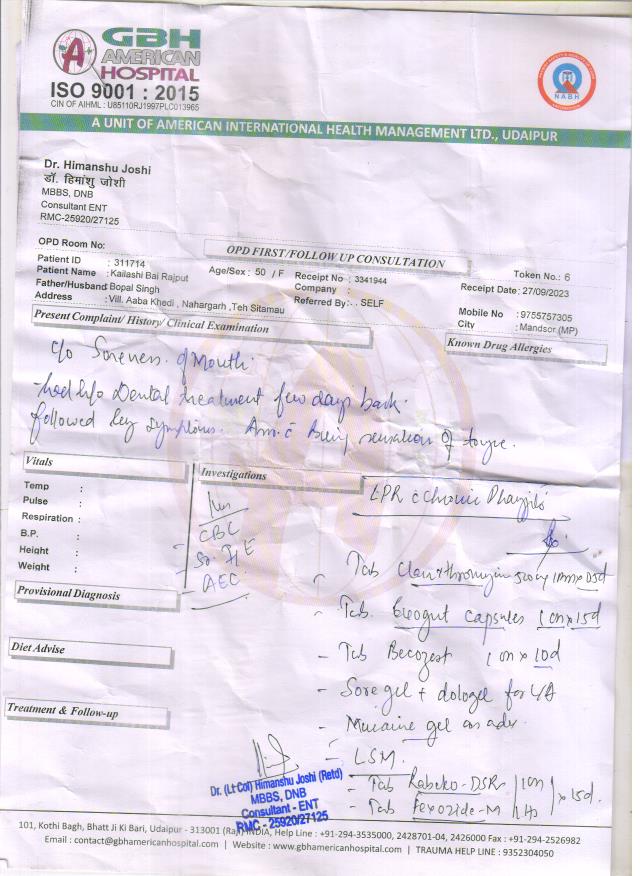 GBH
AMERICAN
HOSPITAL
ISO 9001 : 2015
CIN OF AIHML : U85110RJ1997PLC013965
NABH
A UNIT OF AMERICAN INTERNATIONAL HEALTH MANAGEMENT LTD., UDAIPUR
Dr. Himanshu Joshi
डॉ. हिमांशु जोशी
MBBS, DNB
Consultant ENT
RMC-25920/27125
OPD Room No:
OPD FIRST/FOLLOW UP CONSULTATION
Token No.: 6
Patient ID : 311714
Age/Sex : 50 / F
Receipt No : 3341944
Receipt Date : 27/09/2023
Patient Name : Kailashi Bai Rajput
Company :
Father/Husband : Bopal Singh
Referred By : . . SELF
Mobile No : 9755757305
Address : Vill. Aaba Khedi , Nahargarh ,Teh Sitamau
City : Mandsor (MP)
Present Complaint/ History/ Clinical Examination
Known Drug Allergies
c/o Soreness of Mouth.
had h/o Dental treatment few days back.
followed by symptoms. sensation of
Vitals
Investigations
LPR c̄ Chronic
Temp :
Pulse :
Respiration :
B.P. :
Height :
Weight :
CBC
AEC
Provisional Diagnosis
Diet Advise
Treatment & Follow-up
Tab 500mg x 05d
Tab. capsules 1 on x 15d
- Tab Becozest 1 on x 10d
- Sore gel + dologel for L/A
- Mucaine gel as adv.
- LSM.
- Tab -DSR 1 on
- Tab -M HS x 15d.
Dr. (Lt Col) Himanshu Joshi (Retd)
MBBS, DNB
Consultant - ENT
RMC - 25920/27125
101, Kothi Bagh, Bhatt Ji Ki Bari, Udaipur - 313001 (Raj) INDIA, Help Line : +91-294-3535000, 2428701-04, 2426000 Fax : +91-294-2526982
Email : contact@gbhamericanhospital.com | Website : www.gbhamericanhospital.com | TRAUMA HELP LINE : 9352304050